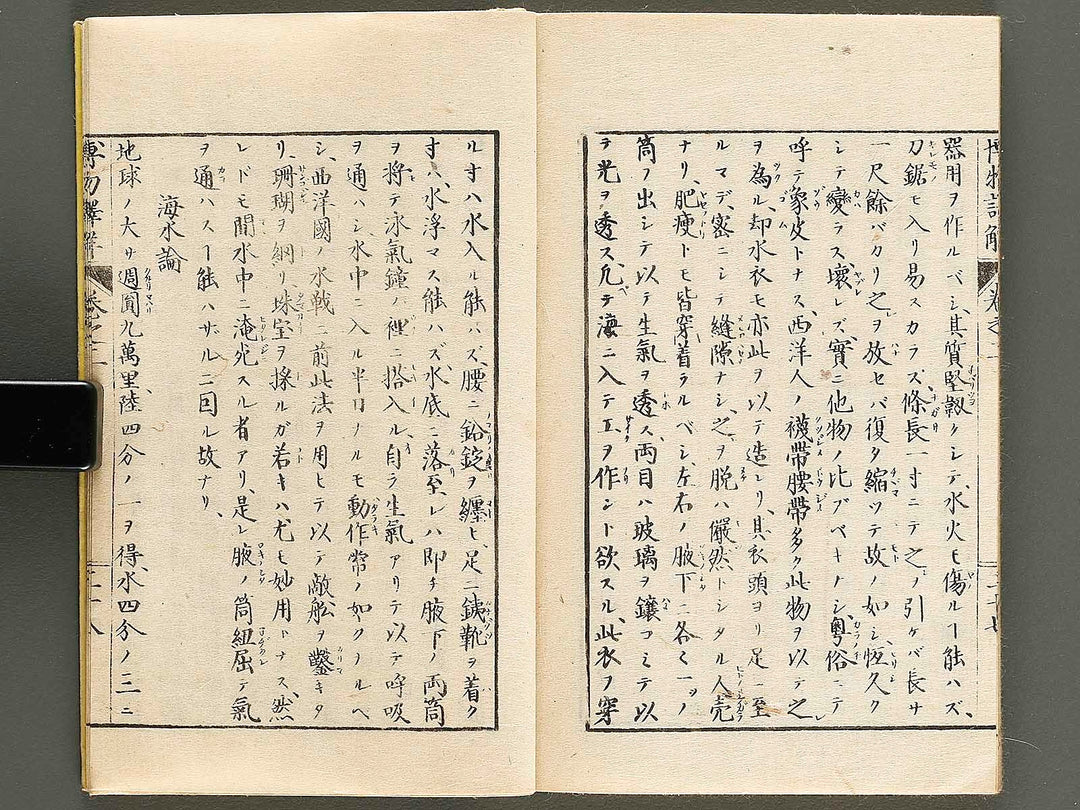 器用ヲ作ルベシ、其質堅靱クシテ、水火モ傷ルヿ能ハズ、
刀鋸モ入リ易スカラズ、條長一寸ニテ之ヲ引ケバ長サ
一尺餘バカリ之ヲ放セバ復タ縮ツテ故ノ如シ恆久ク
シテ變ラス、壞レズ、實ニ他物ノ比ブベキナシ、粤俗ニテ
呼テ象皮トナス、西洋人ノ襪帶腰帶多ク此物ヲ以テ之
ヲ為ル、却水衣モ亦此ヲ以テ造レリ、其衣頭ヨリ足ニ至
ルマデ、密ニシテ縫隙ナシ、之ヲ脱ハ儼然トシタル人売
ナリ、肥瘦トモ皆穿着ラルベシ、左右ノ腋下ニ各〻一ツノ
筒ノ出シテ以テ生氣ヲ透ス、両目ハ玻璃ヲ鑲コミテ以
テ光ヲ透ス、凢テ海ニ入テ工ヲ作ント欲スル、此衣ヲ穿
博物
卷之二
二十七
ル寸ハ水入ル能ハズ、腰ニ鉛錠ヲ纏ヒ足ニ銕靴ヲ着ク
寸ハ、水浮マス能ハズ、水底ニ落至レハ即チ腋下ノ両筒
ヲ将テ泳氣鐘ノ裡ニ搭入ル、自ラ生氣アリテ以テ呼吸
ヲ通ハシ水中ニ入ル半日ノルモ動作常ノ如クナルベ
シ、西洋國ノ水戦ニ前此法ヲ用ヒテ以テ敵舩ヲ鑿キタ
リ、珊瑚ヲ網リ、珠宝ヲ採ルガ若キハ尤モ妙用トナス、然
レドモ間水中ニ淹死スル者アリ、是レ腋ノ筒紐屈テ氣
ヲ通ハスヿ能ハザルニ因ル故ナリ、
海水論
地球ノ大サ週圓九萬里陸四分ノ一ヲ得、水四分ノ三ニ
卷之二
二十八